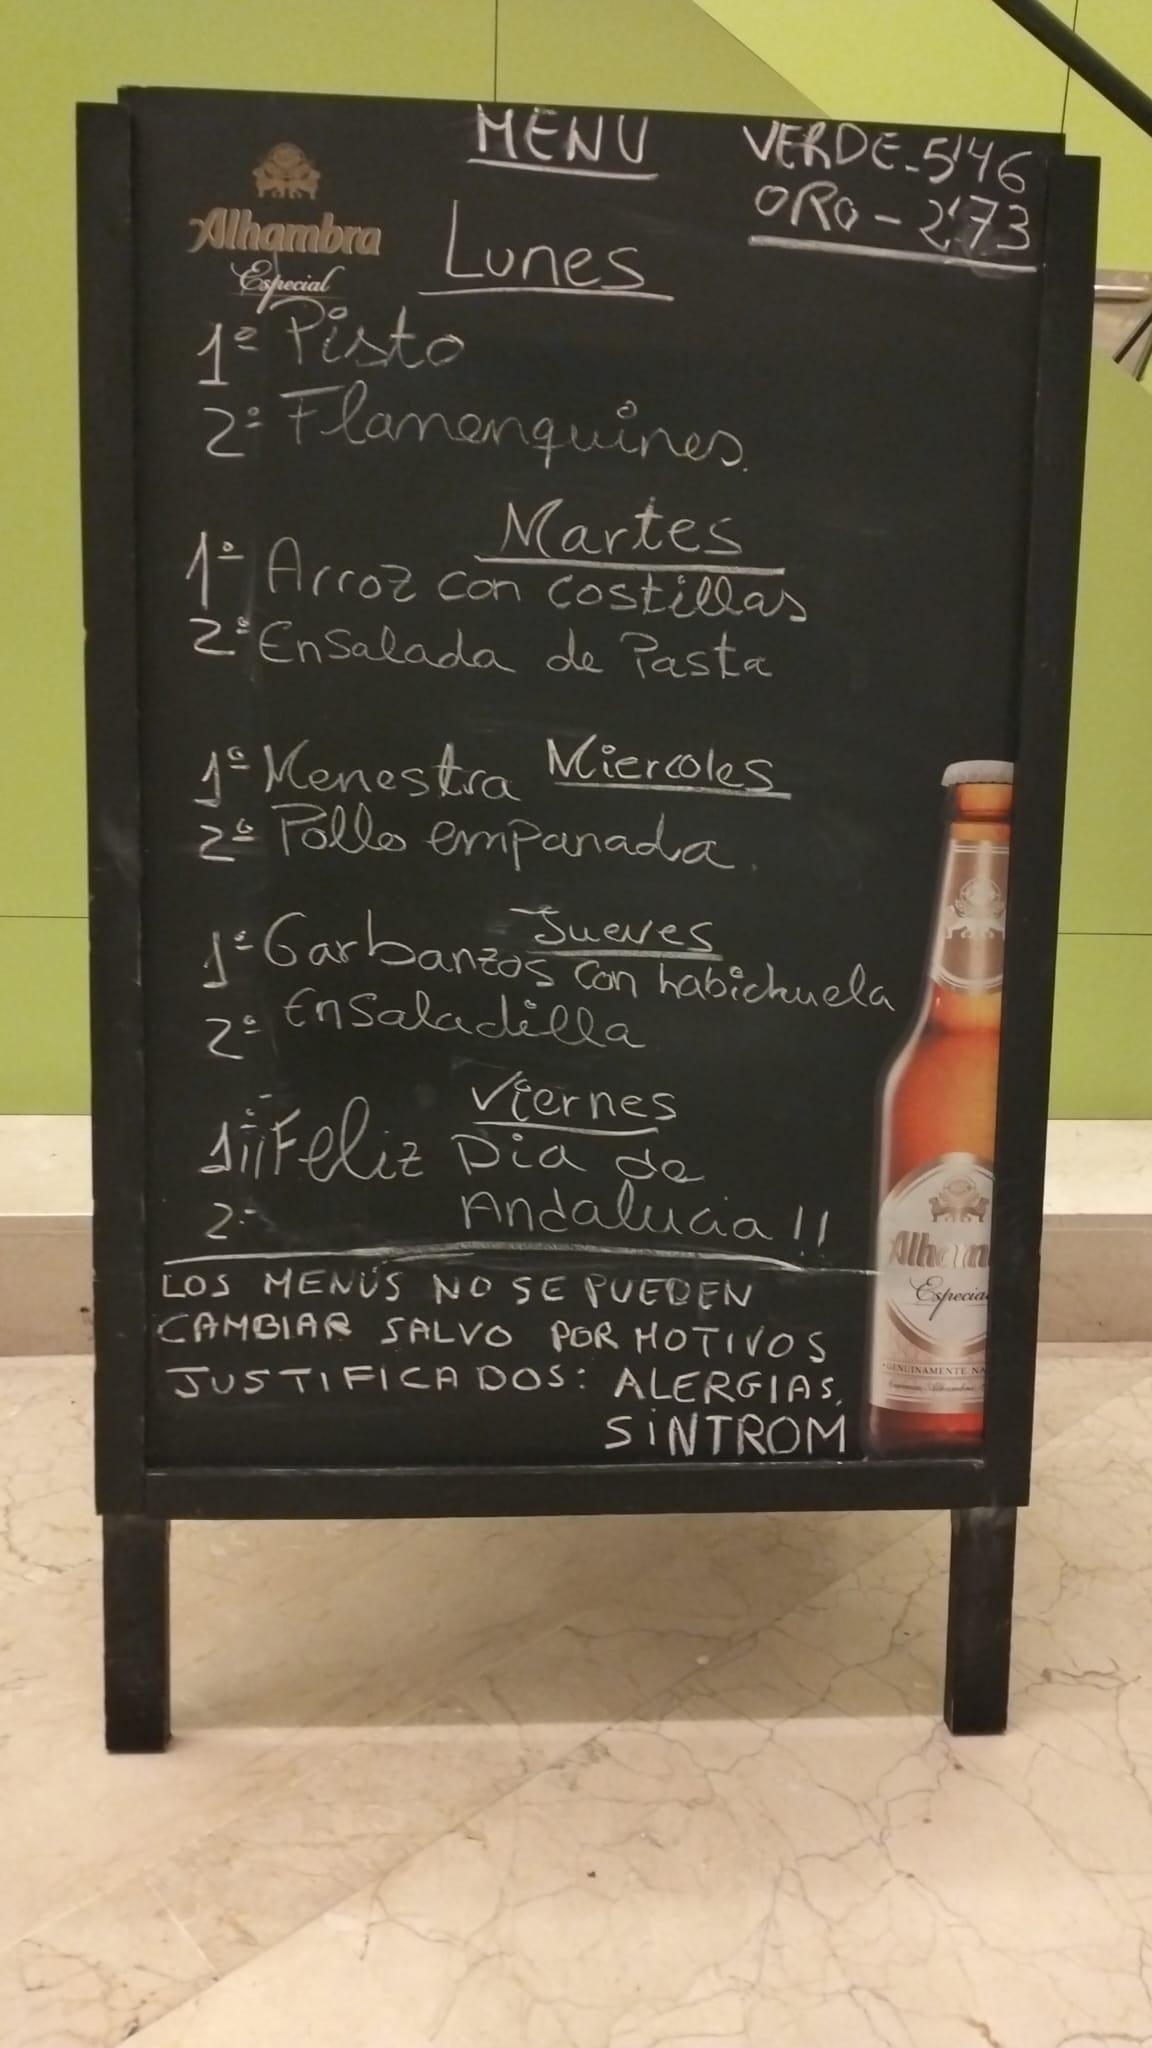 MENU
VERDE-5'46
ORO-2'73
Alhambra
Especial
Lunes
1º Pisto
2º Flamenquines.
Martes
1º Arroz con costillas
2º Ensalada de Pasta
Miercoles
1º Menestra
2º Pollo empanada.
Jueves
1º Garbanzos con habichuela
2º Ensaladilla
Viernes
1º ¡¡Feliz Dia de
2º Andalucia!!
LOS MENÚS NO SE PUEDEN
CAMBIAR SALVO POR MOTIVOS
JUSTIFICADOS: ALERGIAS,
SINTROM
Alham
Especial
GENUINAMENTE NA